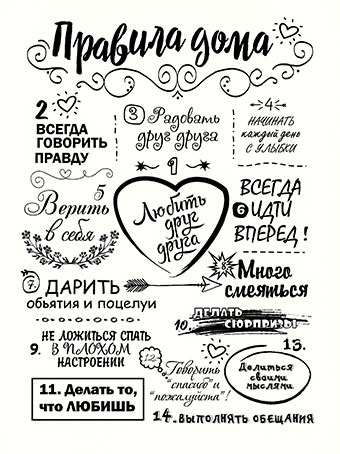 Правила дома
2
ВСЕГДА
ГОВОРИТЬ
ПРАВДУ
3 Радовать
друг друга
4
НАЧИНАТЬ
каждый день
с УЛЫБКИ
1
Любить
друг
друга
5
Верить
в себя
ВСЕГДА
6 ИДТИ
ВПЕРЕД!
7. ДАРИТЬ
обьятия и поцелуи
Много
смеяться
НЕ ЛОЖИТЬСЯ СПАТЬ
9. В ПЛОХОМ
НАСТРОЕНИИ
ДЕЛАТЬ
10. СЮРПРИЗЫ
11. Делать то,
что ЛЮБИШЬ
12.
Говорить
"спасибо" и
"пожалуйста"!
13.
Делиться
своими
мыслями
14. ВЫПОЛНЯТЬ ОБЕЩАНИЯ